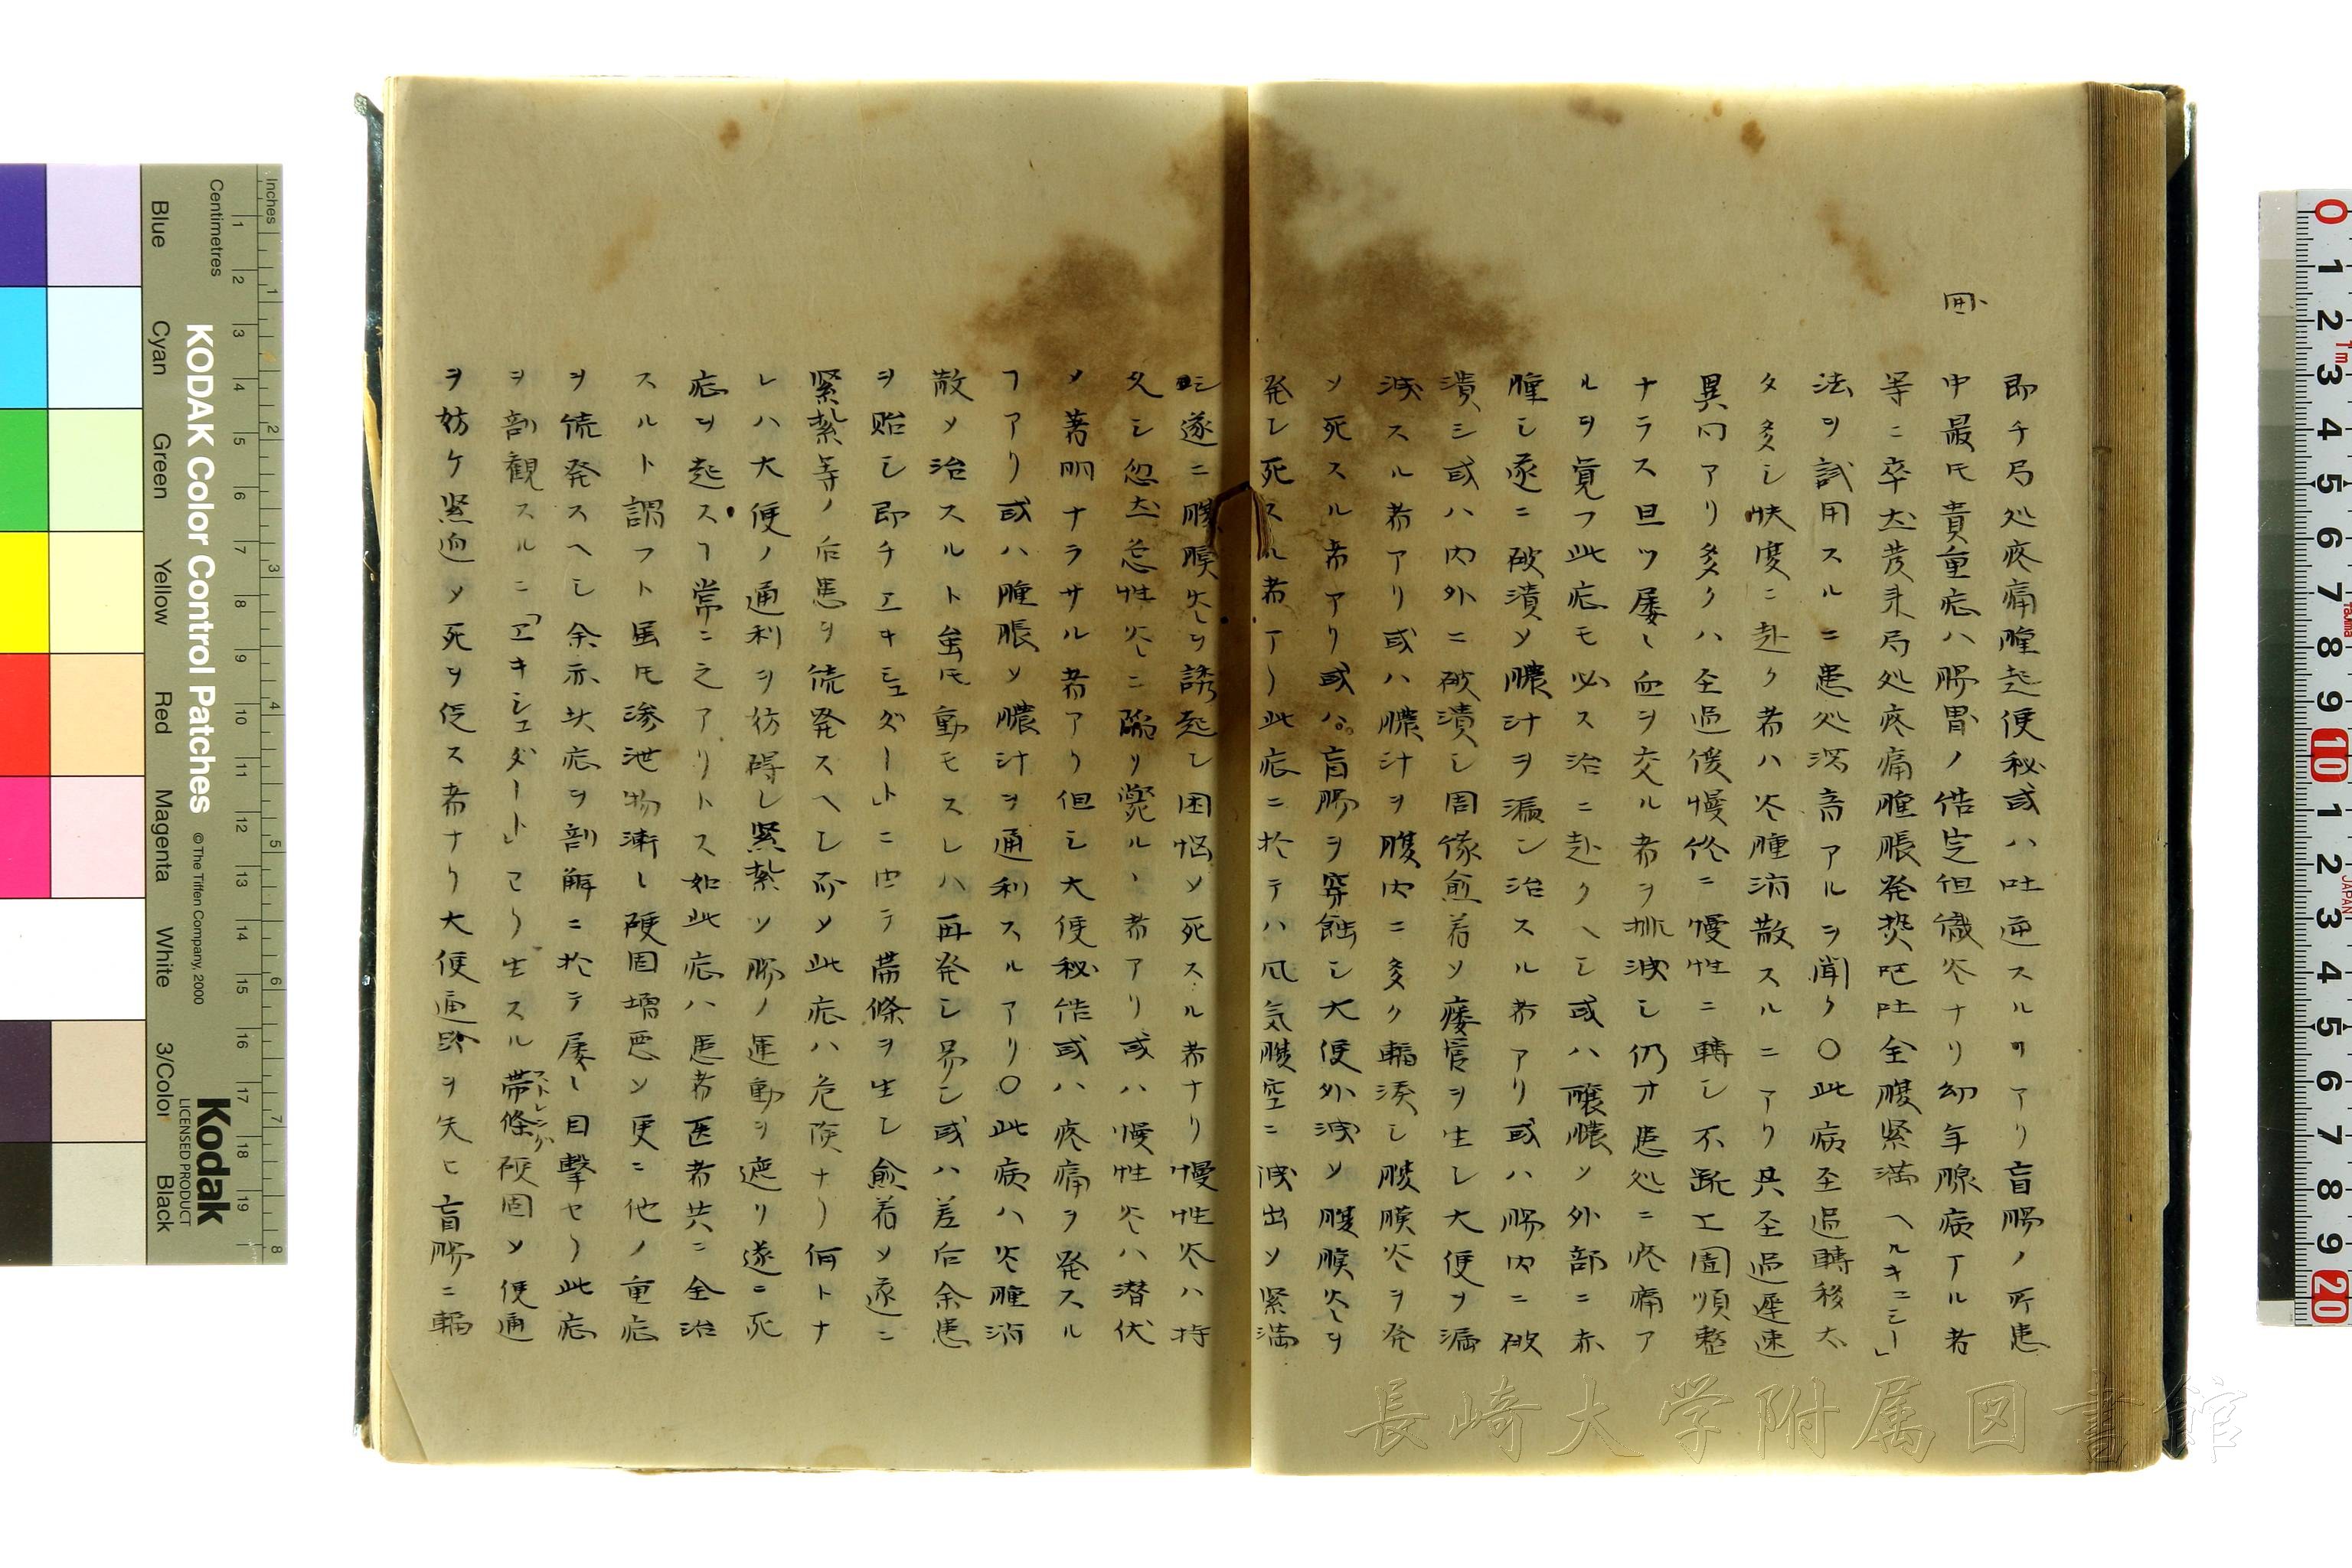 即チ局処疼痛腫起便秘或ハ吐逆スルヿアリ盲腸ノ所患
中最モ貴重症ハ腸胃ノ 但織炎ナリ幼年腺病アル者
等ニ卒然 局処疼痛腫脹発熱嘔吐全腹緊満「ヘルキニシー」
法ヲ試用スルニ患処 アルヲ聞ク〇此病至過轉移太
タ多シ快度ニ赴ク者ハ炎腫消散スルニアリ其至過遲速
異同アリ多クハ至過優慢 ニ慢性ニ轉シ不 順整
ナラス且ツ屡〻血ヲ交ル者ヲ排泄シ仍才患処ニ疼痛ア
ルヲ覚フ此症モ必ス治ニ赴クヘシ或ハ醸膿ソ外部ニ赤
腫シ遂ニ破潰ソ膿汁ヲ漏シ治スル者アリ或ハ腸内ニ破
潰シ或ハ内外ニ破潰シ周縁愈着ソ瘻管ヲ生シ大便ヲ漏
泄スル者アリ或ハ膿汁ヲ腹内ニ多ク輸湊シ腹膜炎ヲ発
ソ死スル者アリ或ハ盲腸ヲ穿蝕シ大便外泄ソ腹膜炎ヲ
発シ死スル者アリ此症ニ於テハ瓦気腹空ニ泄出ソ緊満
シ遂ニ腹膜炎ヲ誘起シ困悩ソ死スル者ナリ慢性炎ハ持
久シ忽然急性炎ニ陥リ斃ルヽ者アリ或ハ慢性炎ハ潜伏
ソ著明ナラサル者アリ但シ大便秘結或ハ疼痛ヲ発スル
ヿアリ或ハ腫脹ソ膿汁ヲ通利スルアリ〇此病ハ炎腫消
散ソ治スルト虽モ動モスレハ再発シ易シ或ハ差后余患
ヲ貽シ即チエキシュダート」ニ由テ帯條ヲ生シ愈着ソ遂ニ
緊紮等ノ后患ヲ続発スヘシ而ソ此症ハ危険ナリ何トナ
レハ大便ノ通利ヲ妨碍シ緊紮ソ腸ノ運動ヲ遮リ遂ニ死
症ヲ起スヿ常ニ之アリトス如此症ハ患者医者共ニ全治
スルト謂フト虽モ滲泄物漸〻硬固増悪ソ更ニ他ノ重症
ヲ続発スヘシ余亦 症ヲ剖解ニ於テ屡〻目撃セリ此症
ヲ剖観スルニ「エキシュダート」ヨリ生スル帯條硬固ソ便通
ストレング
ヲ妨ケ緊迫ソ死ヲ促ス者ナリ大便通路ヲ失ヒ盲腸ニ輸
KODAK Color Control Patches
© The Tiffen Company, 2000
Kodak
LICENSED PRODUCT
Inches
Centimetres
Blue
Cyan
Green
Yellow
Red
Magenta
White
3/Color
Black
JAPAN
長崎大学附属図書館